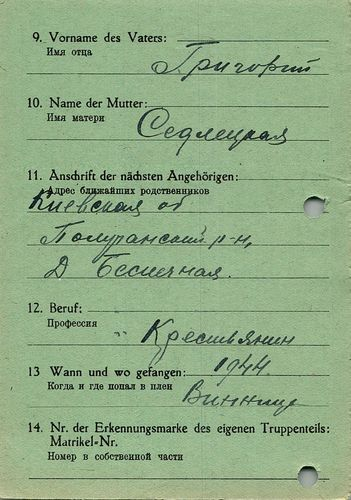 9. Vorname des Vaters:
Имя отца
Григорий
10. Name der Mutter:
Имя матери
Седлецкая
11. Anschrift der nächsten Angehörigen:
Адрес ближайших родственников
Киевская об
р-н,
Д Беспечная.
12. Beruf:
Профессия
Крестьянин
13 Wann und wo gefangen:
1944.
Когда и где попал в плен
Винница
14. Nr. der Erkennungsmarke des eigenen Truppenteils:
Matrikel-Nr.
Номер в собственной части